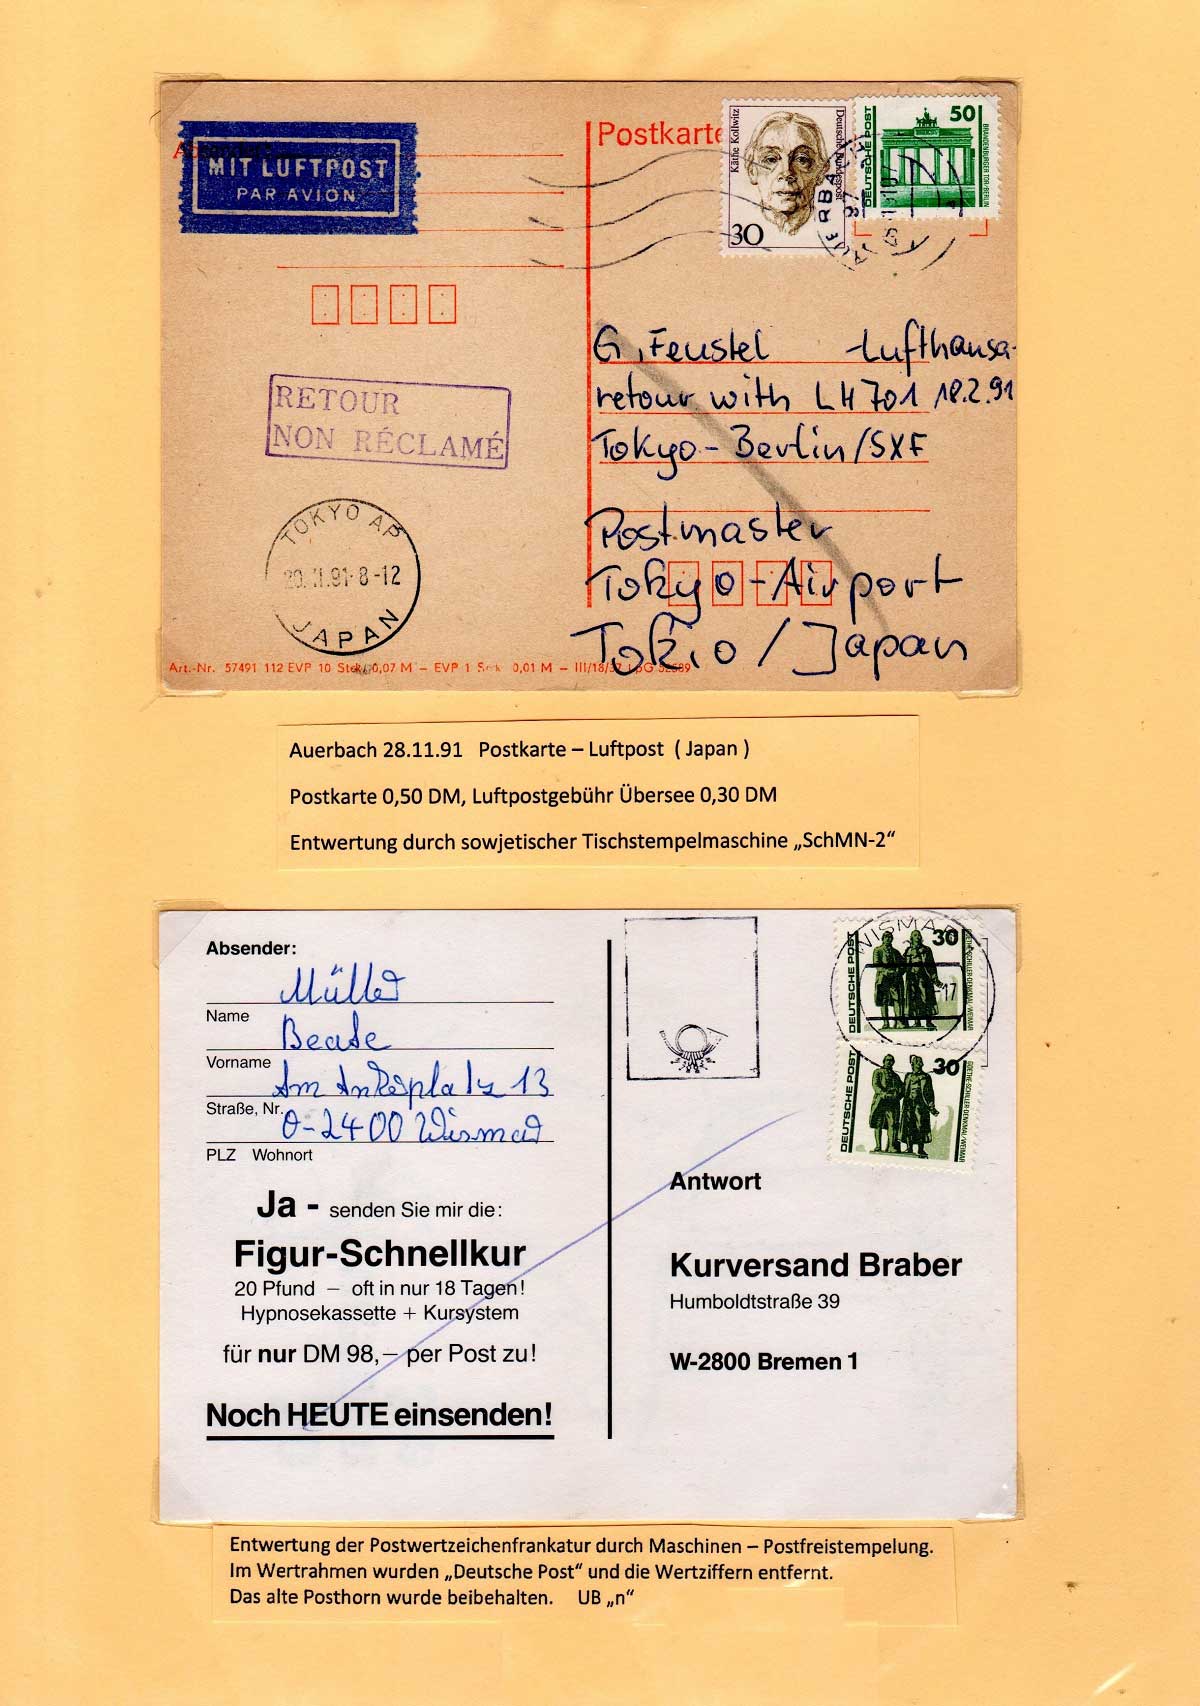 MIT LUFTPOST
PAR AVION
Postkarte
Käthe Kollwitz
Deutsche Bundespost
30
DEUTSCHE POST
50
BRANDENBURGER TOR-BERLIN
G. Feustel Lufthansa-
retour with LH 701 18.2.91
Tokyo-Berlin/SXF
Postmaster
Tokyo-Airport
Tokio / Japan
RETOUR
NON RÉCLAMÉ
TOKYO AP
20.11.91.8-12
JAPAN
Art.-Nr. 57491 112 EVP 10 Stck 0,07 M – EVP 1 Stck 0,01 M – III/18/37
Auerbach 28.11.91 Postkarte – Luftpost ( Japan )
Postkarte 0,50 DM, Luftpostgebühr Übersee 0,30 DM
Entwertung durch sowjetischer Tischstempelmaschine „SchMN-2“
Absender:
Müller
Name
Beate
Vorname
Straße, Nr.
O-2400 Wismar
PLZ Wohnort
WISMAR
-17
DEUTSCHE POST
30
GOETHE-SCHILLER-DENKMAL/WEIMAR
DEUTSCHE POST
30
GOETHE-SCHILLER-DENKMAL/WEIMAR
Ja - senden Sie mir die:
Figur-Schnellkur
20 Pfund – oft in nur 18 Tagen!
Hypnosekassette + Kursystem
für nur DM 98,– per Post zu!
Noch HEUTE einsenden!
Antwort
Kurversand Braber
Humboldtstraße 39
W-2800 Bremen 1
Entwertung der Postwertzeichenfrankatur durch Maschinen – Postfreistempelung.
Im Wertrahmen wurden „Deutsche Post“ und die Wertziffern entfernt.
Das alte Posthorn wurde beibehalten. UB „n“